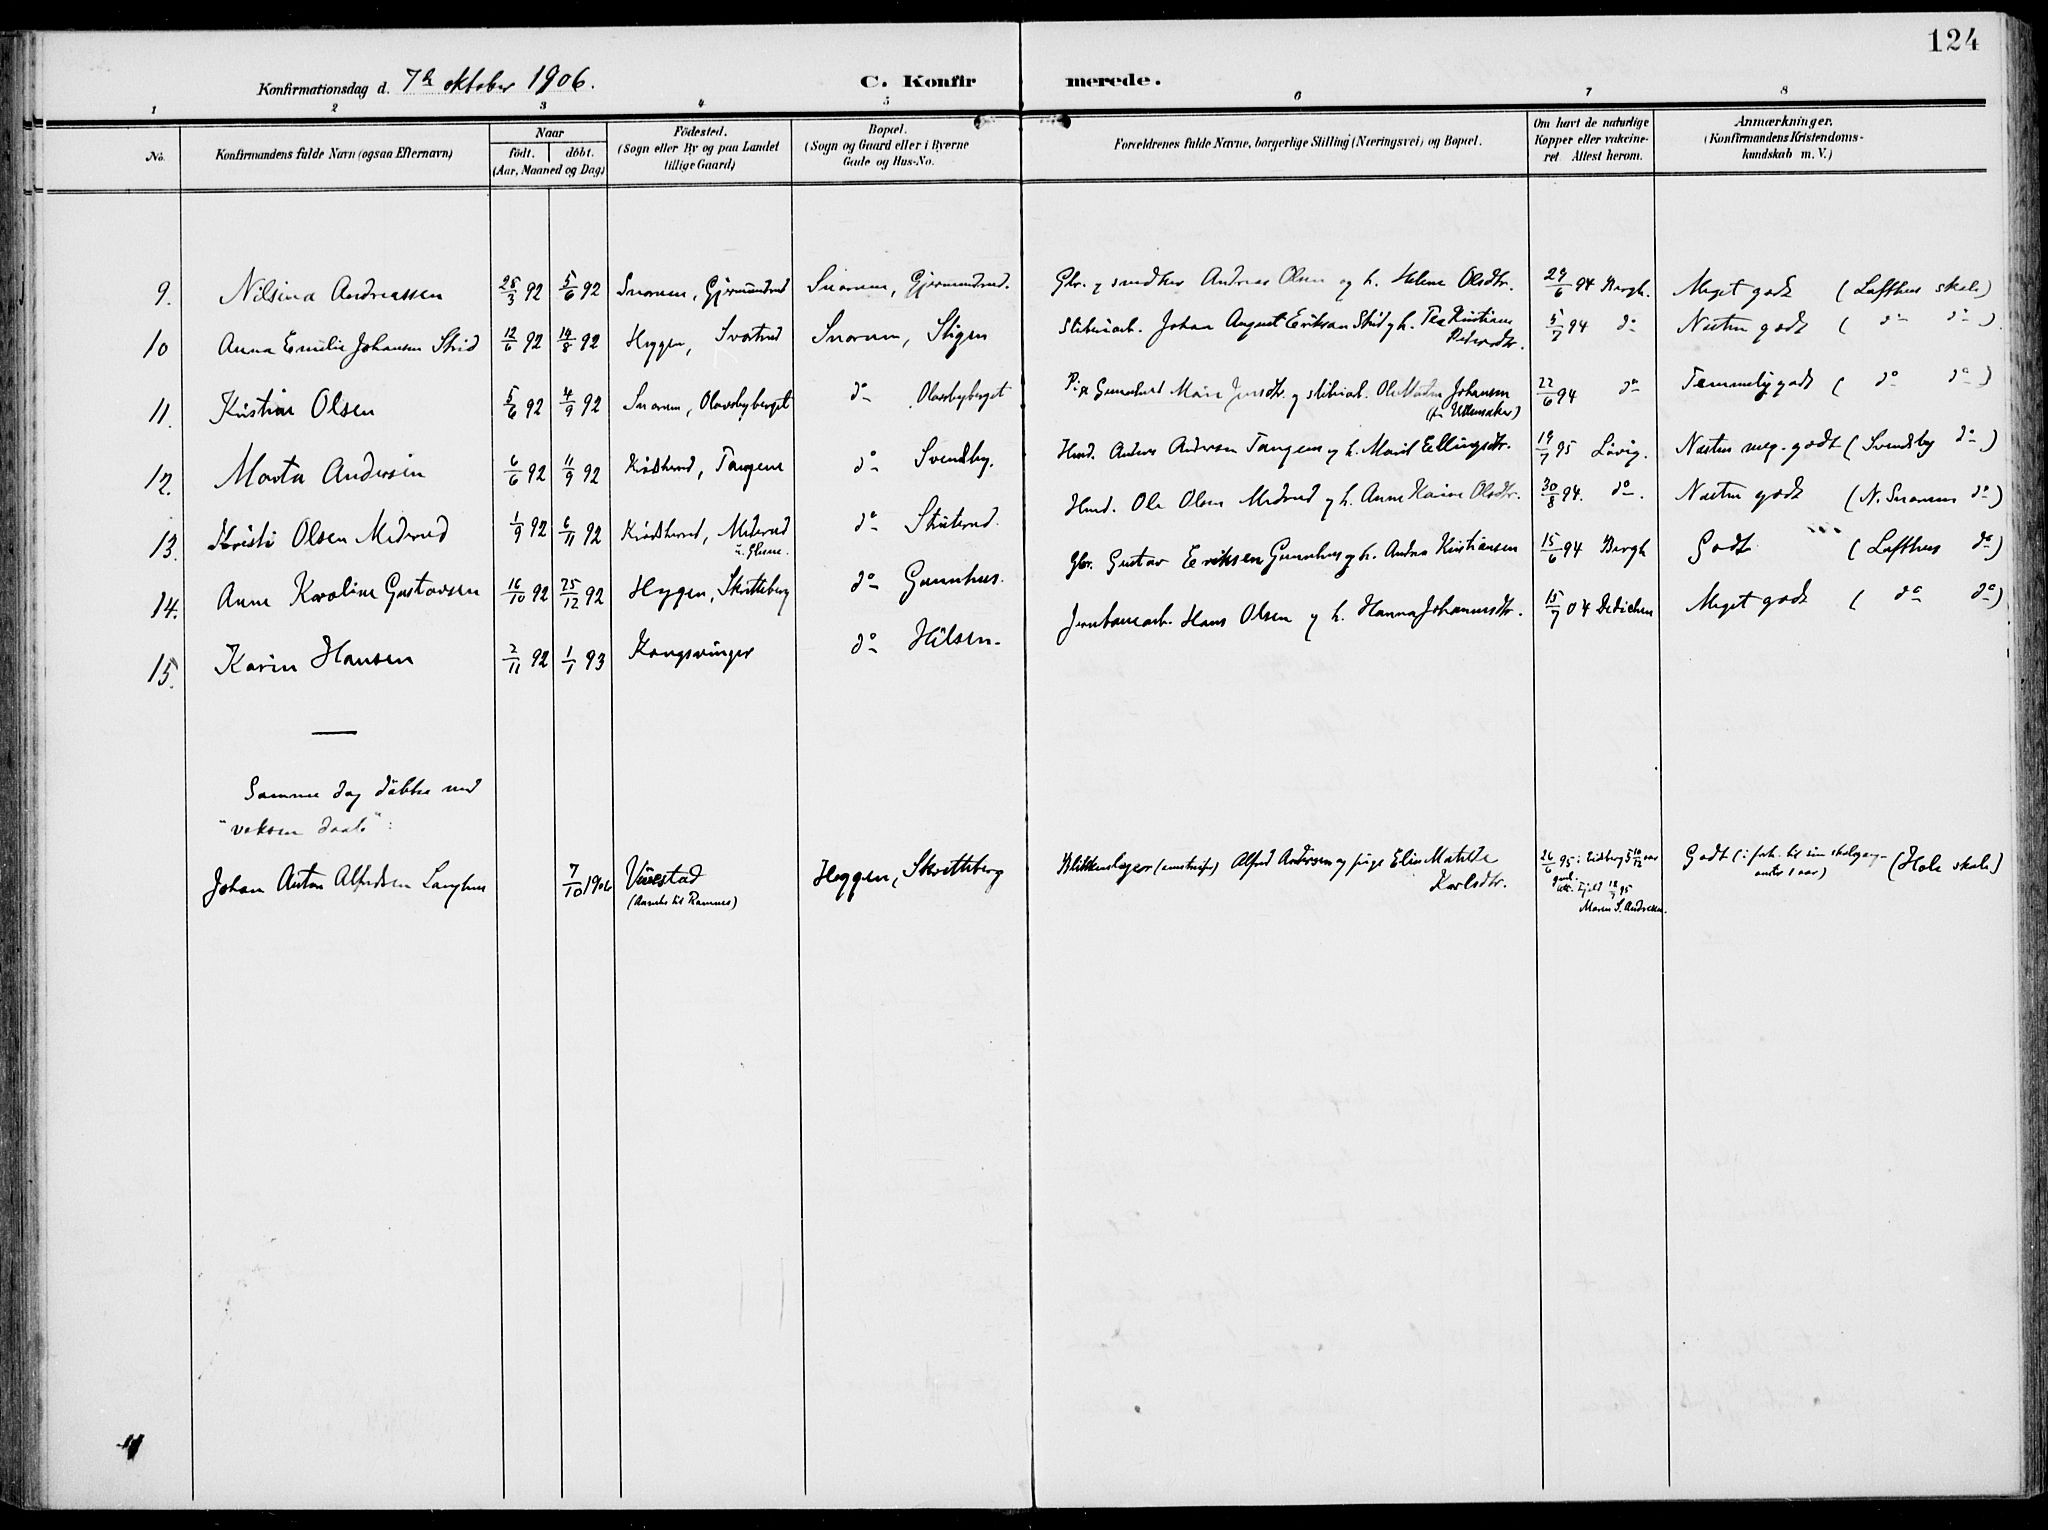 124
Konfirmationsdag d. 7de oktober 1906. C. Konfirmerede.
1 2 3 4 5 6 7 8
No. Konfirmandens fulde Navn (ogsaa Efternavn) Naar födt. döbt. (Aar, Maaned og Dag) Födested. (Sogn eller By og paa Landet tillige Gaard) Bopæl. (Sogn og Gaard eller i Byerne Gade og Hus-No. Forældrenes fulde Navne, borgerlige Stilling (Næringsvei) og Bopæl. Om havt de naturlige Kopper eller vakcineret. Attest herom. Anmærkninger. (Konfirmandens Kristendomskundskab m. V.)
9. Nilsina Andreassen 28/3 92 5/6 92 Snarum, Gjermundrud Snarum, Gjermundrud. Gbr. og Andreas Olsen og h. Helene Olsdtr. 29/6 94 Bergh. Meget godt (Lofthus skole)
10 Anna Emilie Johansen Strid 12/6 92 14/8 92 Heggen, Svartrud Snarum, Stigen Sliberiarb. Johan August Erikson Strid og h. Tea Kristiane Petersdtr. 5/7 94 do Næsten godt ( do do )
11. Kristian Olsen 5/6 92 4/9 92 Snarum, Olavsbyberget do Olavsbyberget Pige Gunnhild Marie Jensdtr. og sliberiarb. Ole Martin Johansen 22/6 94 do Temmelig godt ( do do )
12. Marta Andersen 6/6 92 11/9 92 Krødsherred, Tangen do Svendsby. Husm. Anders Andersen Tangen og h. Marit Ellingsdtr. 19/7 95 Lövig. Næsten meg. godt (Svendsby do)
13. Kristi Olsen Mederud 1/9 92 6/11 92 Krødsherred, Mederud u. Glesne. do Stuterud. Husm. Ole Olsen Mederud og h. Anne Karine Olsdtr. 30/8 94. do. Næsten godt (N. Snarum do)
14. Anne Karoline Gustavsen 16/10 92 25/12 92 Heggen, Skretteberg do Gunnhus. Gbr. Gustav Eriksen Gunnhus og h. Andrea Kristiansen 15/6 94 Bergh Godt (Lofthus do)
15. Karin Hansen 2/11 92 1/1 93 Kongsvinger do Hilsen. Jernbanearb. Hans Olsen og h. Hanna Johannesdtr. 15/7 04 Dedichen Meget godt ( do do)
Samme dag döbte med
"voksen daab":
Johan Anton Alfredsen Langhus 7/10 1906 Vivestad (Anneks til Ramnes) Heggen, Skretteberg Blikkenslager Alfred Andersen og pige Elin Matilde Karlsdtr. 26/6 95 Maren S. Andresen. Godt (Hole skole)